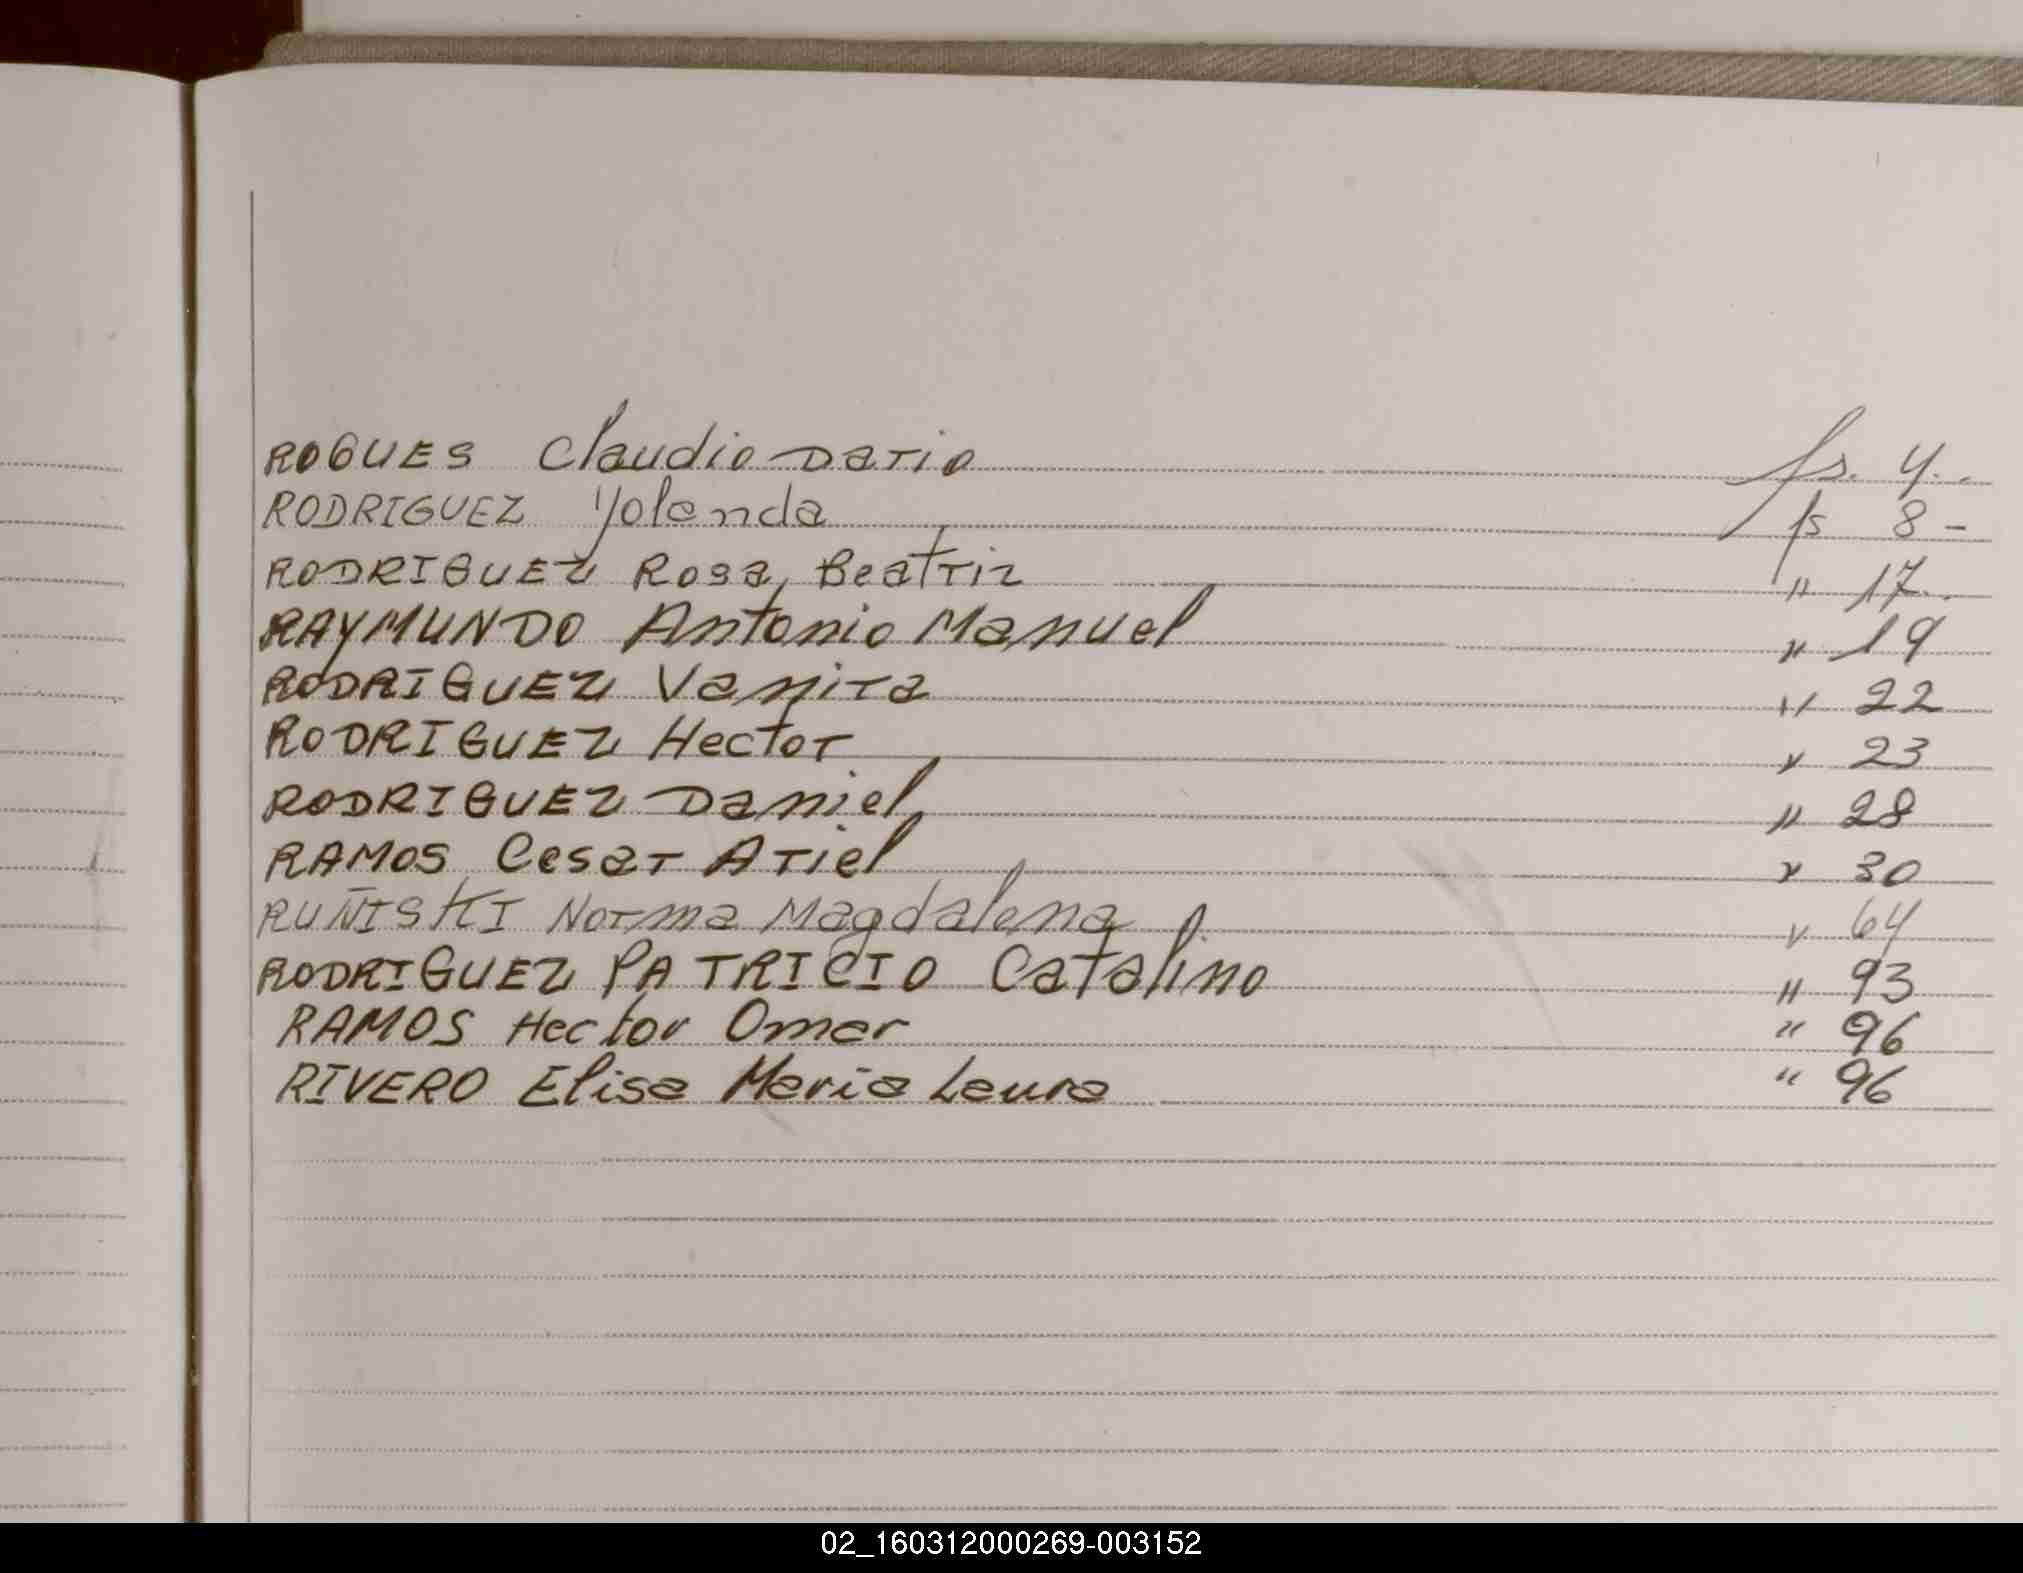 ROGUES Claudio Dario fs. 4.
RODRIGUEZ Yolanda fs 8 -
RODRIGUEZ Rosa Beatriz " 17.
RAYMUNDO Antonio Manuel " 19
RODRIGUEZ Vanira " 22
RODRIGUEZ Hector " 23
RODRIGUEZ Daniel " 28
RAMOS Cesar Ariel " 30
RUÑISKI Norma Magdalena " 64
RODRIGUEZ PATRICIO Catalino " 93
RAMOS Hector Omar " 96
RIVERO Elisa Maria Laura " 96
02_160312000269-003152